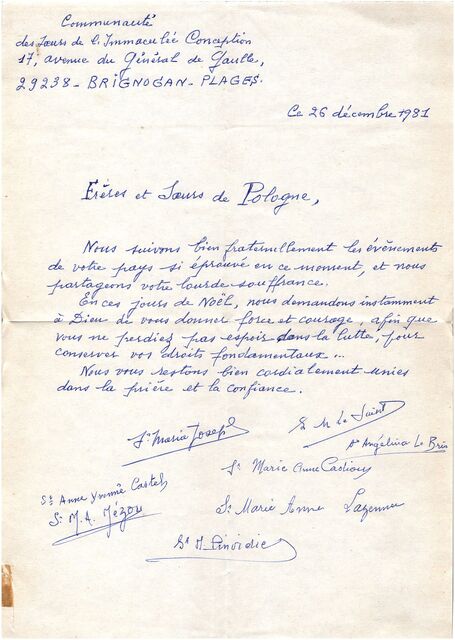 Communauté
des Sœurs de l'Immaculée Conception
17, avenue du Général de Gaulle,
29238 - BRIGNOGAN - PLAGES.
Ce 26 décembre 1981
Frères et Sœurs de Pologne,
Nous suivons bien fraternellement les évènements
de votre pays si éprouvé en ce moment, et nous
partageons votre lourde souffrance.
En ces jours de NOËL, nous demandons instamment
à Dieu de vous donner force et courage, afin que
vous ne perdiez pas espoir dans la lutte, pour
conserver vos droits fondamentaux ...
Nous vous restons bien cordialement unies
dans la prière et la confiance.
Sr Maria Joseph
S. M Le Saint
Sr Angélina Le Bris
Sr Marie Anne
Sr Anne Yvonne Castel
Sr M. A. Mézou
Sr Marie Anne
Sr M.